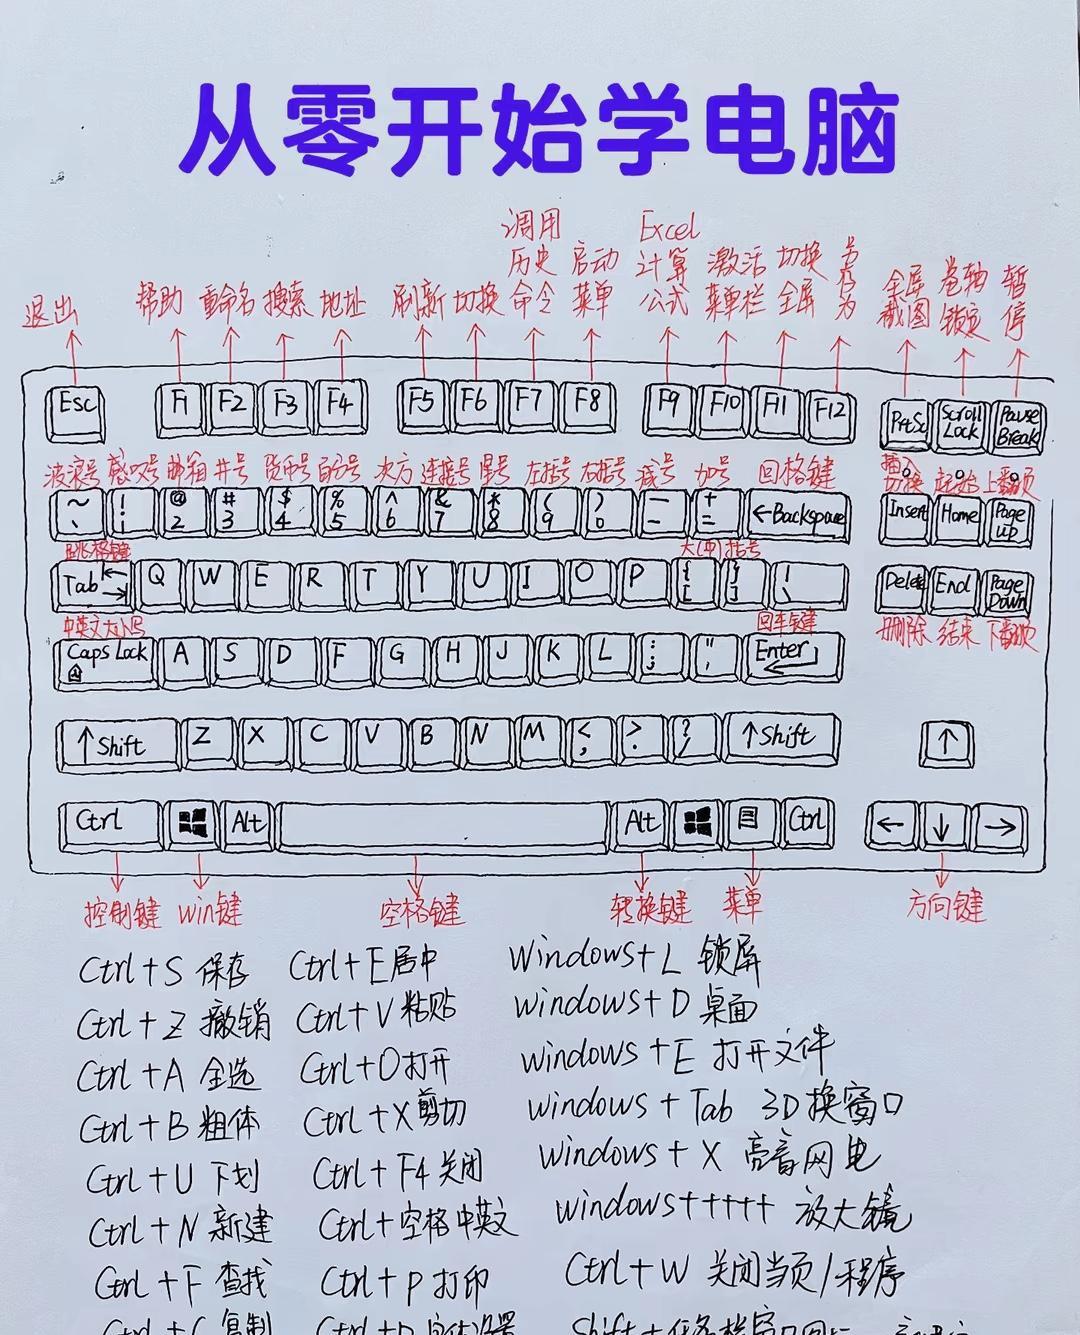 从零开始学电脑
调用 Excel
历史 启动 计算 激活 切换 另存为
退出 帮助 重命名 搜索 地址 刷新 切换 命令 菜单 公式 菜单栏 全屏 全屏截图 卷轴锁定 暂停
Esc F1 F2 F3 F4 F5 F6 F7 F8 F9 F10 F11 F12 PrtSc Scroll Lock Pause Break
波浪号 感叹号 邮箱 井号 货币号 百分号 次方 连接号 星号 左括号 右括号 减号 加号 回格键 插入切换 起始 上翻页
~ ! @ # $ % ^ & * ( ) — +
、 1 2 3 4 5 6 7 8 9 0 - = ←Backspace Insert Home Page up
跳格键 大(中)括号
Tab Q W E R T Y U I O P { [ } ] | \ Delete End Page Down
中英文大小写 回车键 删除 结束 下翻页
Caps Lock A S D F G H J K L : ; " ' Enter
↑Shift Z X C V B N M < , > . ? / ↑Shift ↑
Ctrl Alt Alt Ctrl ← ↓ →
控制键 win键 空格键 转换键 菜单 方向键
Ctrl+S 保存 Ctrl+E居中 Windows+L 锁屏
Ctrl+Z 撤销 Ctrl+V粘贴 windows+D 桌面
Ctrl+A 全选 Ctrl+O打开 windows+E 打开文件
Ctrl+B 粗体 Ctrl+X剪切 windows+Tab 3D换窗口
Ctrl+U 下划 Ctrl+F4关闭 windows+X 亮音网电
Ctrl+N 新建 Ctrl+空格中英文 windows+++++ 放大镜
Ctrl+F 查找 Ctrl+P打印 Ctrl+W 关闭当页/程序
Ctrl+C 复制 Ctrl+D字体设置